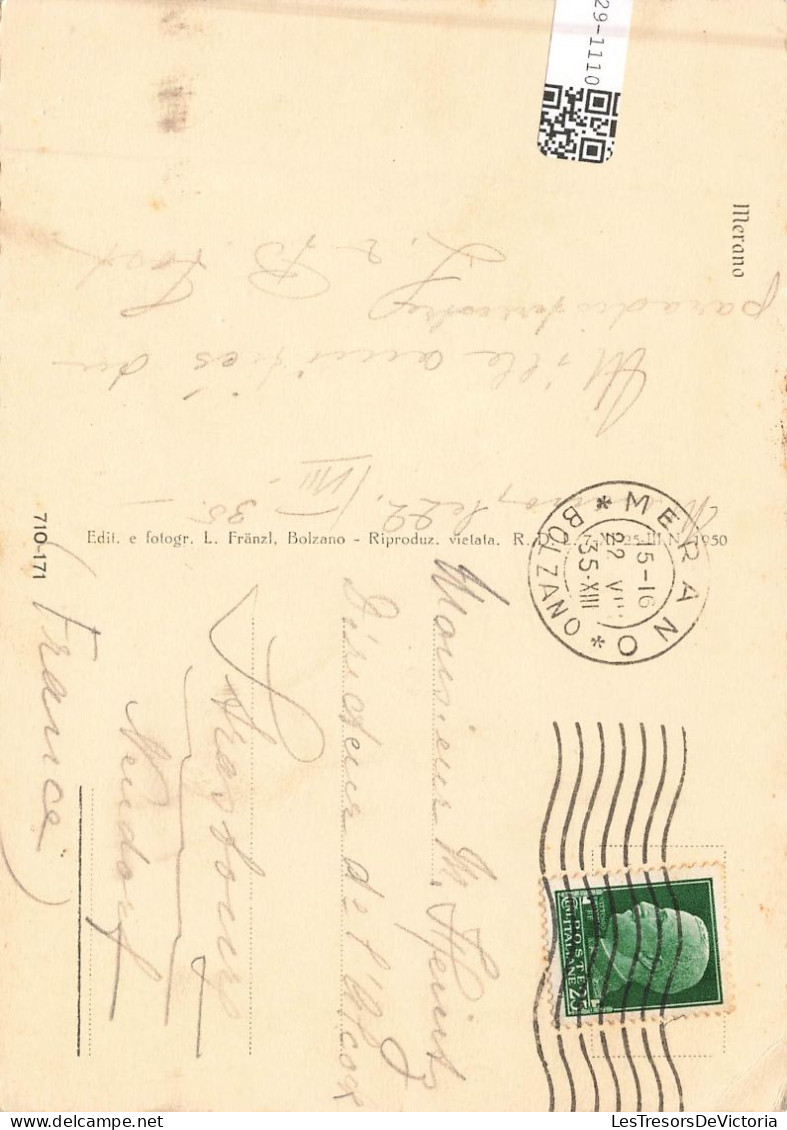 29-1110
Merano
le 22. VIII.
35.
Mille amitiés du
paradis terrestre
L. & B.
Edit. e fotogr. L. Fränzl, Bolzano - Riproduz. vietata. R. D. L. 7-XI-25-III N. 1950
710-171
MERANO
15-16
22 VIII
35-XIII
* BOLZANO *
POSTE
ITALIANE
25
Monsieur M.
Directeur de l'
Strasbourg
Neudorf
(France)
LesTresorsDeVictoria